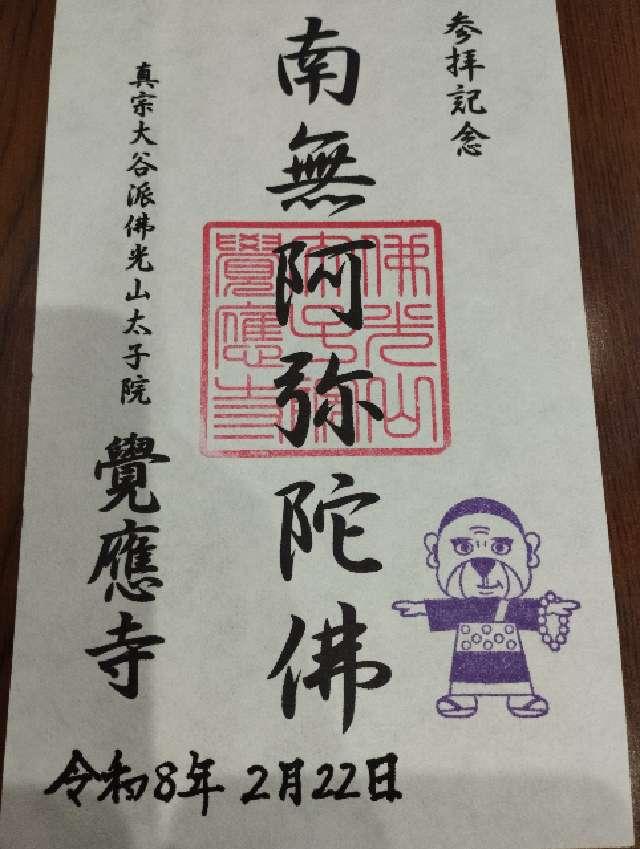 参拝記念
南無阿弥陀佛
佛光山
太子院
覺應寺
真宗大谷派佛光山太子院
覺應寺
令和8年 2月22日